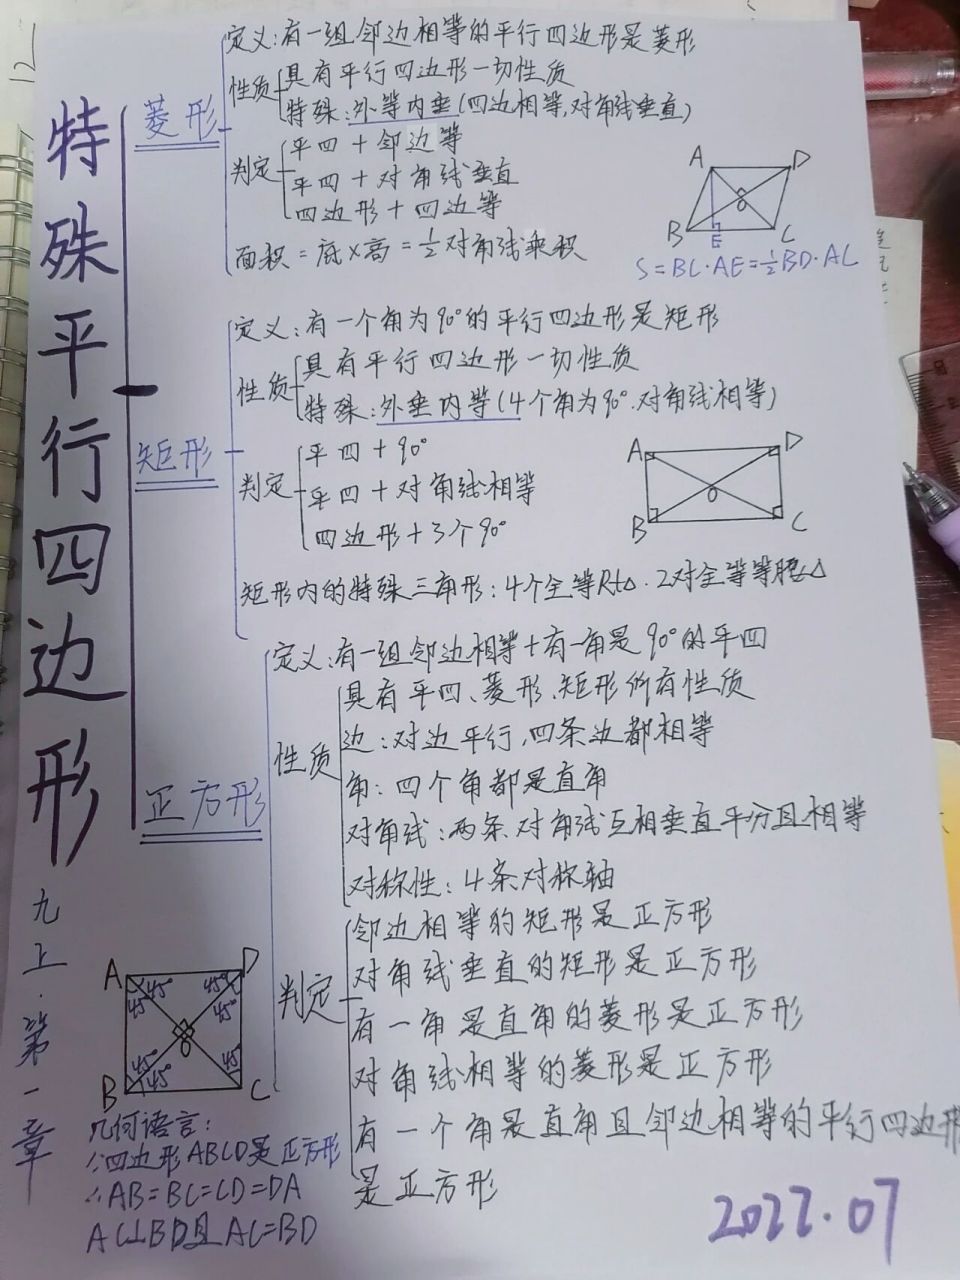 特殊平行四边形
九上·第一章
菱形
定义:有一组邻边相等的平行四边形是菱形
性质
具有平行四边形一切性质
特殊:外等内垂(四边相等,对角线垂直)
判定
平四+邻边等
平四+对角线垂直
四边形+四边等
面积=底×高=½对角线乘积
A D
O
B E C
S=BC·AE=½BD·AC
矩形
定义:有一个角为90°的平行四边形是矩形
性质
具有平行四边形一切性质
特殊:外垂内等(4个角为90°.对角线相等)
判定
平四+90°
平四+对角线相等
四边形+3个90°
A D
O
B C
矩形内的特殊三角形:4个全等Rt△.2对全等等腰△
正方形
定义:有一组邻边相等+有一角是90°的平四
性质
具有平四、菱形、矩形所有性质
边:对边平行,四条边都相等
角:四个角都是直角
对角线:两条对角线互相垂直平分且相等
对称性:4条对称轴
判定
邻边相等的矩形是正方形
对角线垂直的矩形是正方形
有一角是直角的菱形是正方形
对角线相等的菱形是正方形
有一个角是直角且邻边相等的平行四边形
是正方形
A D
45° 45° 45° 45°
O
45° 45° 45°
B C
几何语言:
∵四边形ABCD是正方形
∴AB=BC=CD=DA
AC⊥BD且AC=BD
2022.07